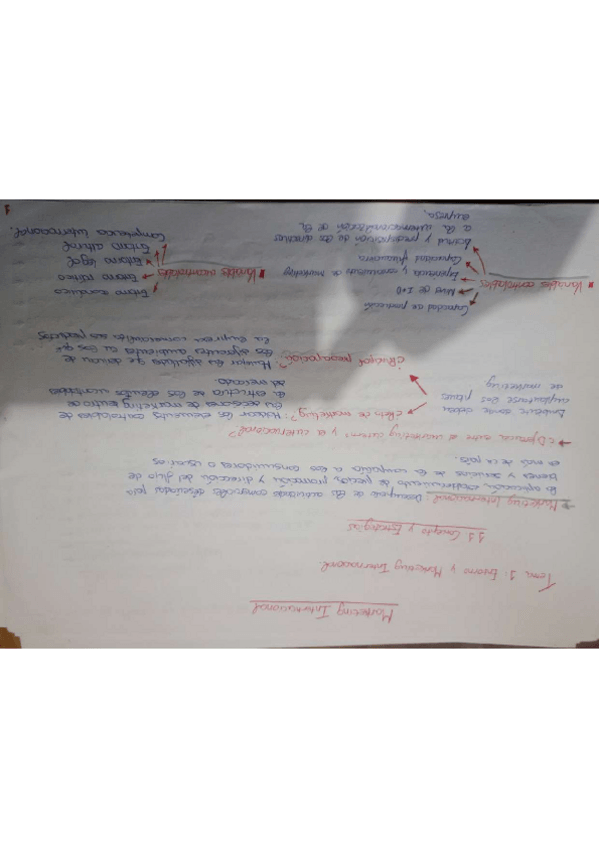 Marketing Internacional
Tema 1: Entorno y Marketing Internacional.
1.1. Concepto y Estrategias
→ Marketing Internacional: Desempeño de las actividades comerciales diseñadas para
la aplicación, establecimiento de precios, promoción y dirección del flujo de
bienes y servicios de la compañía a los consumidores o usuarios
en más de un país.
→ ¿Diferencia entre el marketing interno y el internacional?
Ambiente donde deben
implantarse los planes
de marketing
¿Reto de marketing?: Moldear los elementos controlables de
las decisiones de marketing dentro de
la estructura de los elementos incontrolables
del mercado.
¿Principal preocupación?: Manejar las dificultades que derivan de
los diferentes ambientes en los que
la empresa comercializa sus productos
▪ Variables controlables
Capacidad de producción
Nivel de I+D
Experiencia y conocimientos de marketing
Capacidad financiera
Actitud y predisposición de los directivos
a la internacionalización de la
empresa.
▪ Variables incontrolables
Entorno económico
Entorno político
Entorno legal
Entorno cultural
Competencia internacional.
1